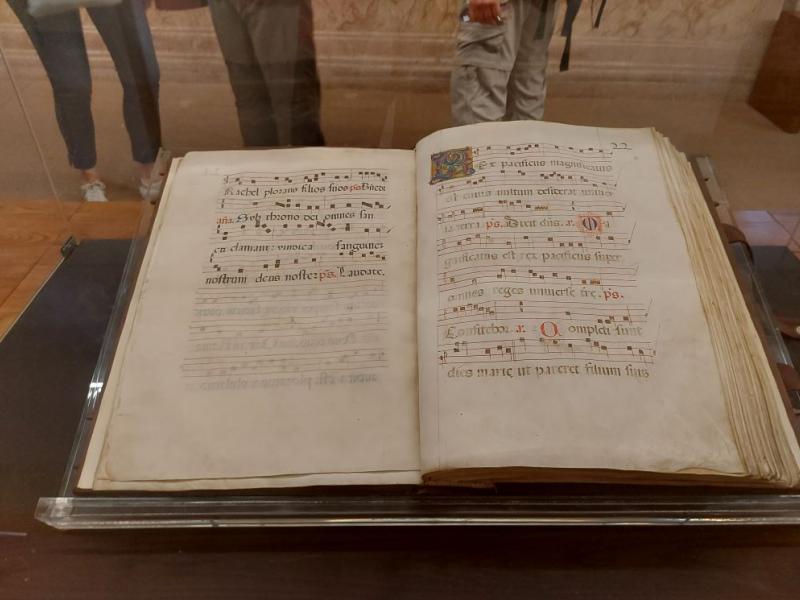 Rachel plorans filios suos ps. Bñdc̄
aña. Sub throno dei omnes san
cti clamant: vindica sanguinem
nostrum deus noster ps. Laudate.
22
Rex pacificus magnificatus
est cuius vultum desiderat universa
terra. ps. Dixit dñs. a. Ma
gnificatus est rex pacificus super
omnes reges universe tr̄e. ps.
Confitebor. a. Completi sunt
dies marie ut pareret filium suũ